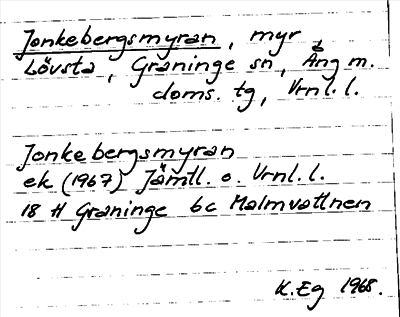 Jonkebergsmyran, myr,
Lövsta, Graninge sn, Ång m.
doms. tg, Vrnl. l.
Jonkebergsmyran
ek (1967) Jämtl. o. Vrnl. l.
18 H Graninge bc Malmvattnen
K. Eg 1968.